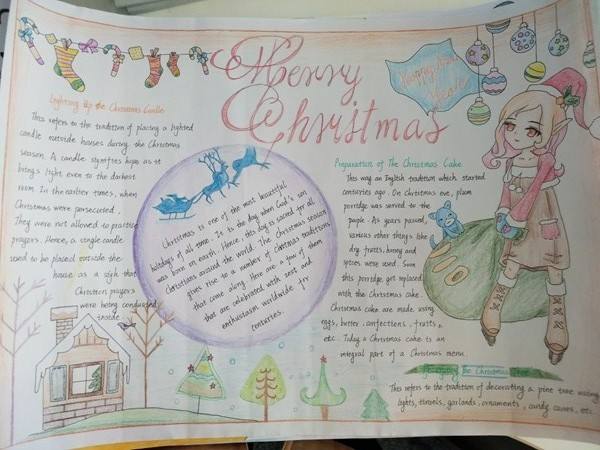 Merry
Christmas
Happy New
Year
Lighting Up the Christmas Candle
This refers to the tradition of placing a lighted
candle outside houses during the Christmas
season. A candle signifies hope as it
brings light even to the darkest
room. In the earlier times, when
Christmas were persecuted.
They were not allowed to practice
prayers. Hence, a single candle
used to be placed outside the
house as a sigh that
Christian prayers
were being conducted
inside.
Christmas is one of the most beautiful
holidays of all time. It is the day when God's son
was born on earth. Hence this day is sacred for all
Christians around the world. The Christmas season
gives rise to a number of christmas traditions
that come along. Here are a few of them
that are celebrated with zest and
enthusiasm worldwide for
centuries.
Preparation of The Christmas Cake
This way an Inglish tradition which started
centuries ago. On Christmas eve, plum
porridge was served to the
people. As years passed,
various other things like
dry fruits, honey and
spices were used. Soon
this porridge got replaced
with the Christmas cake.
Christmas cake are made using
eggs, butter, confections, fruits,
etc. Today a Christmas cake is an
integral part of a Christmas menu.
the Christmas Tree
This refers to the tradition of decorating a pine tree using
lights, tinsels, garlands, ornaments, candy canes, etc.